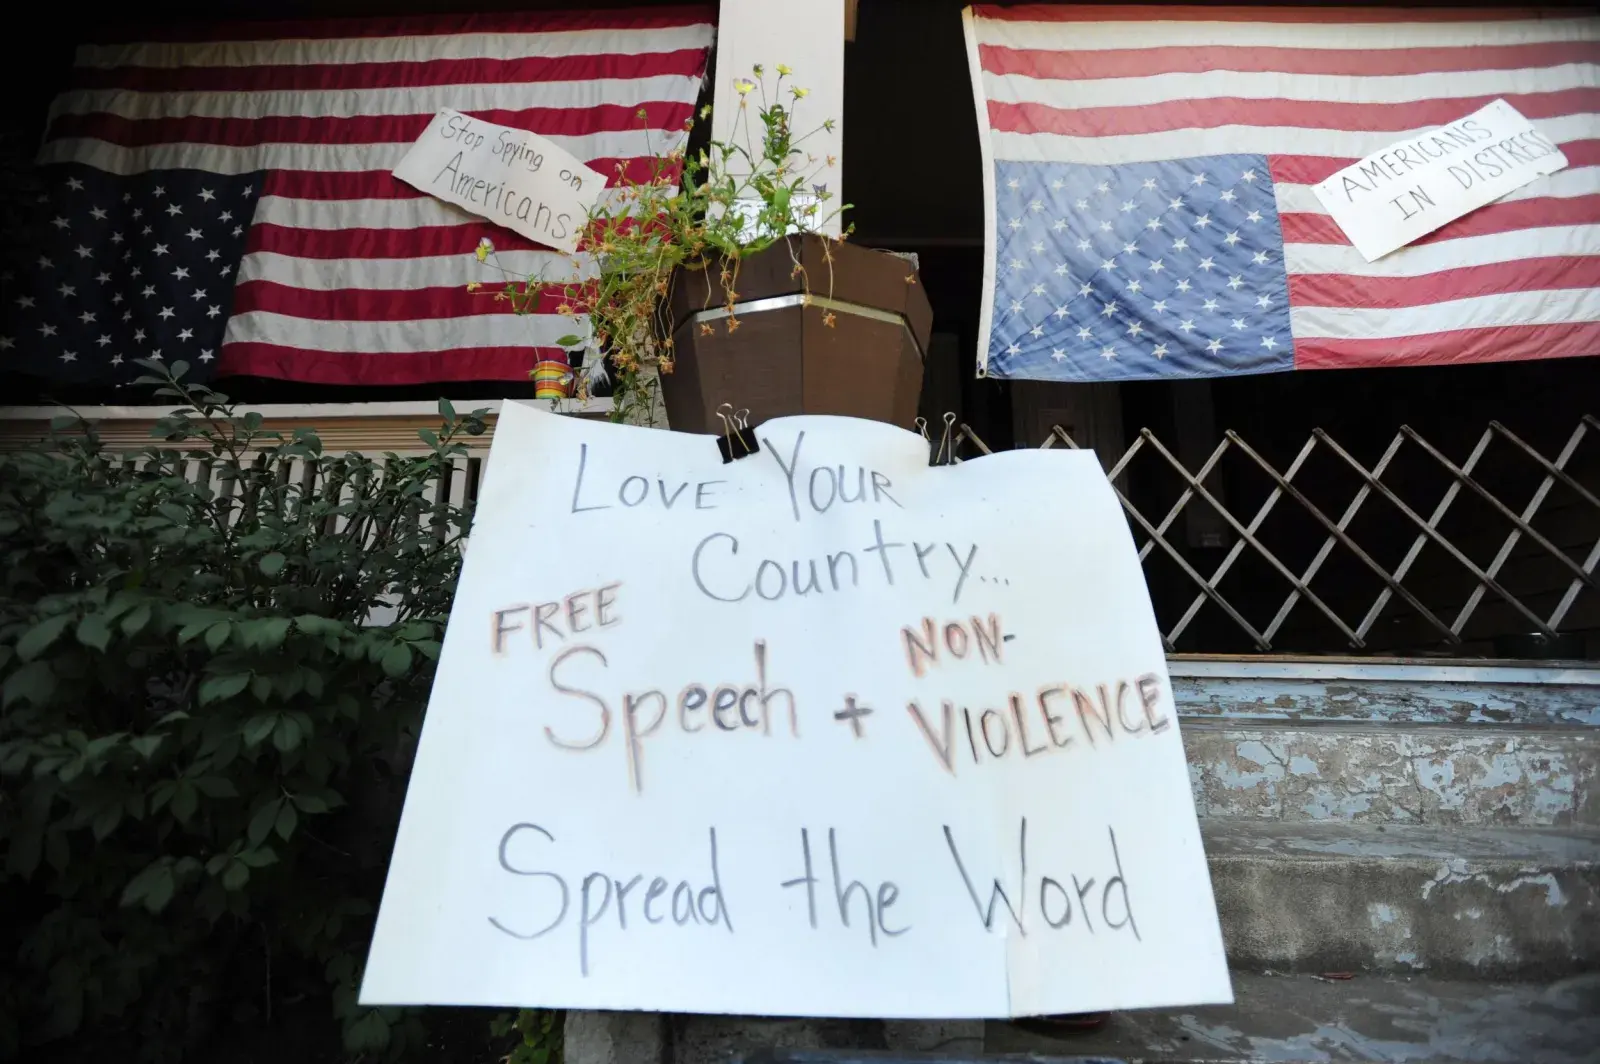 Stop Spying on
Americans
AMERICANS
IN DISTRESS
LOVE YOUR
Country...
FREE
Speech + NON-
VIOLENCE
Spread the Word